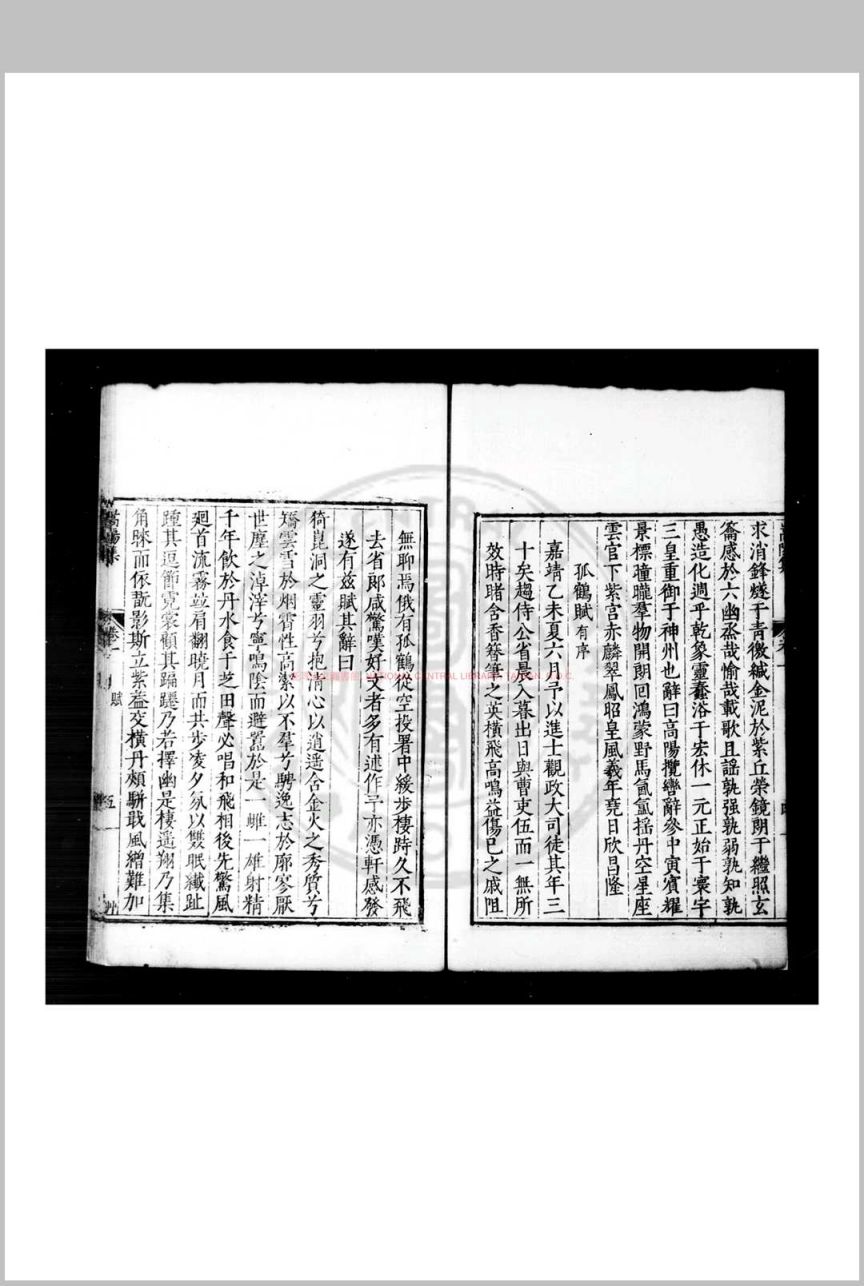 求消鋒燧于青徼緘金泥於紫丘榮鏡朗于繼照玄
籥感於六幽烝哉愉哉載歌且謡孰强孰弱孰知孰
愚造化週乎乾象靈蠢浴于宏休一元正始于寰宇
三皇重御于神州也辭曰高陽攬轡辭參中寅賓耀
景標曈曨羣物開朗回鴻蒙野馬氤氲揺丹空星座
雲官下紫宫赤麟翠鳳昭皇風羲年堯日欣昌隆
孤鶴賦有序
嘉靖乙未夏六月予以進士觀政大司徒其年三
十矣趨侍公省晨入暮出日與曹吏伍而一無所
效時睹含香簪筆之英横飛高鳴益傷巳之戚阻
無聊焉俄有孤鶴從空投署中緩歩棲時久不飛
去省郎咸驚嘆好文者多有述作予亦憑軒感發
遂有兹賦其辭曰
猗崑洞之靈羽兮抱清心以逍遥含金火之秀質兮
矯雲雪於烟霄性高潔以不羣兮騁逸志於廓寥厭
世塵之淖滓兮寧鳴陰而避嚣於是一雌一雄射精
千年飲於丹水食于芝田聲必唱和飛相後先驚風
廻首流霧竝肩翻曉月而共歩凌夕氛以雙眠纎趾
踵其逗節霓裳顧其蹁躚乃若擇幽是棲遥翔乃集
角睞而依翫影斯立紫益交横丹頰駢戢風繒難加
嵩陽集
卷一
賦
五